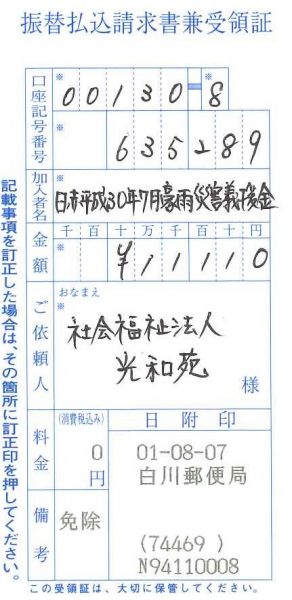 振替払込請求書兼受領証
口座記号番号
※
00130-8
※
635289
加入者名
※
日赤平成30年7月豪雨災害義援金
金額
千百十万千百十円
※
¥11110
ご依頼人
おなまえ
※
社会福祉法人
光和苑
様
料金
(消費税込み)
0
円
日附印
01-08-07
白川郵便局
(74469 )
N94110008
備考
免除
記載事項を訂正した場合は、その箇所に訂正印を押してください。
この受領証は、大切に保管してください。